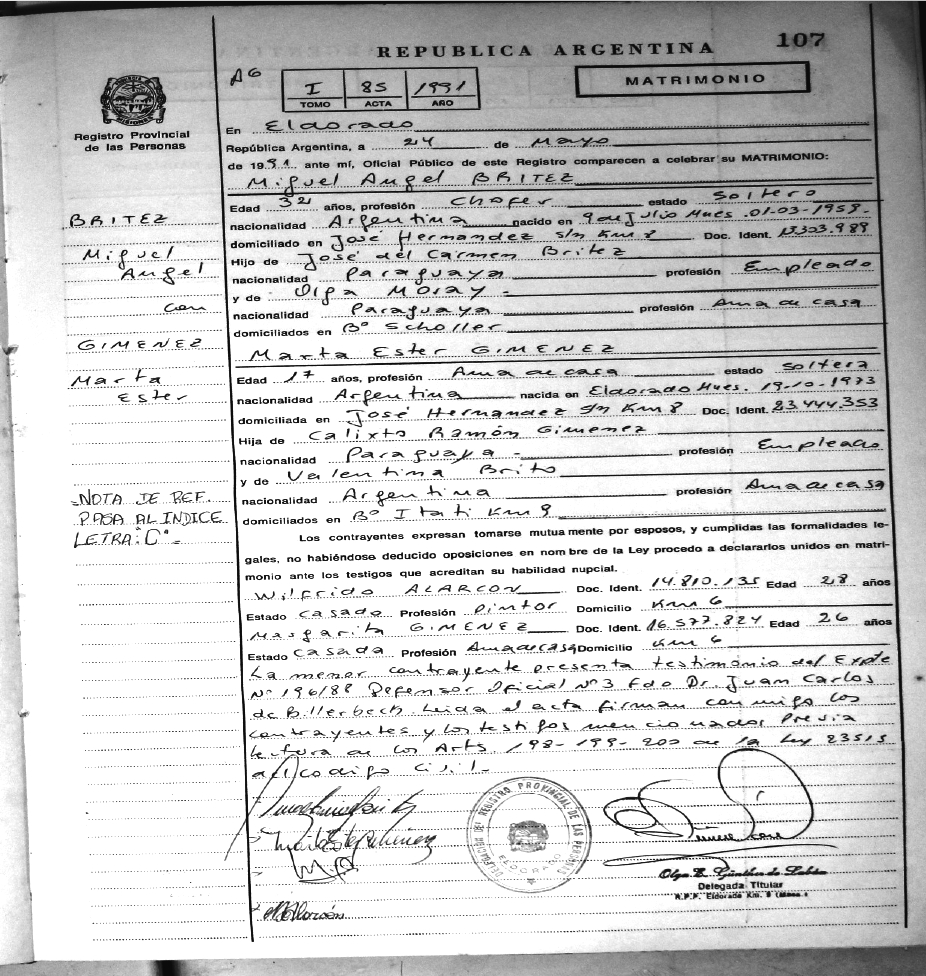 107
REPUBLICA ARGENTINA
AG
I 85 1991
TOMO ACTA AÑO
MATRIMONIO
Registro Provincial
de las Personas
En Eldorado
República Argentina, a 24 de Mayo
de 1991 ante mí, Oficial Público de este Registro comparecen a celebrar su MATRIMONIO:
Miguel Angel BRITEZ
Edad 32 años, profesión Chofer estado Soltero
nacionalidad Argentina nacido en 9 de Julio Mnes. 01-03-1959.
domiciliado en José Hernandez s/n Km 8 Doc. Ident. 13.303.989
Hijo de José del Carmen Britez
nacionalidad Paraguaya profesión Empleado
y de Olga MORAY -
nacionalidad Paraguaya profesión Ama de casa
domiciliados en Bº Scholler
Marta Ester GIMENEZ
Edad 17 años, profesión Ama de casa estado Soltera
nacionalidad Argentina nacida en Eldorado Mnes. 19-10-1973
domiciliada en José Hernandez s/n Km 8 Doc. Ident. 23.444.353
Hija de Calixto Ramón Gimenez
nacionalidad Paraguaya - profesión Empleado
y de Valentina Brito
nacionalidad Argentina profesión Ama de casa
domiciliados en Bº Itati Km 9
Los contrayentes expresan tomarse mutuamente por esposos, y cumplidas las formalidades le-
gales, no habiéndose deducido oposiciones en nombre de la Ley procedo a declararlos unidos en matri-
monio ante los testigos que acreditan su habilidad nupcial.
Wilfrido ALARCON Doc. Ident. 14.810.135 Edad 28 años
Estado Casado Profesión Pintor Domicilio Km 6
Margarita GIMENEZ Doc. Ident. 16.577.824 Edad 26 años
Estado Casada Profesión Ama de casa Domicilio Km 6
La menor contrayente presenta testimonio del Expte
Nº 196/88 Defensor Oficial Nº 3 Fdo Dr. Juan Carlos
de Billerbeck. Leida el acta firman conmigo los
contrayentes y los testigos mencionados Previa
lectura de los Arts. 198-199-200 de la Ley 23515
del Codigo Civil.-
BRITEZ
Miguel
Angel
con
GIMENEZ
Marta
Ester
-NOTA DE REF.
PASA AL INDICE
LETRA: "C" -
DELEGACION DEL REGISTRO PROVINCIAL DE LAS PERSONAS
ELDORADO
Olga E. Günther de
Delegada Titular
R.P.P. Eldorado Km. 9 (Mnes.)